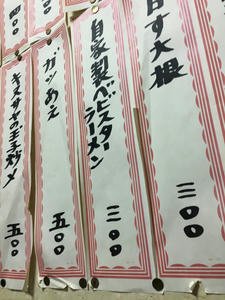 自家製ベビスター
ラーメン
三〇〇
ガツあえ
五〇〇
キヌサヤの玉子炒メ
五〇〇
大根
三〇〇